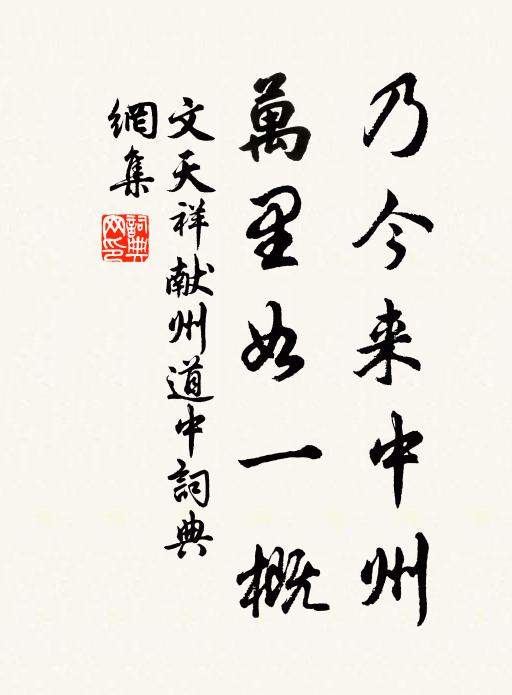 乃今来中州
萬里如一概
文天祥献州道中詞典
網集
詞典网印